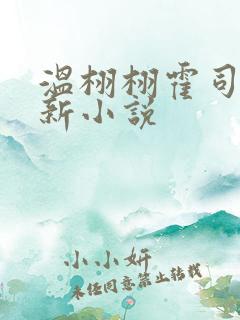 温栩栩霍司
新小说
小小妍
未经同意禁止转载